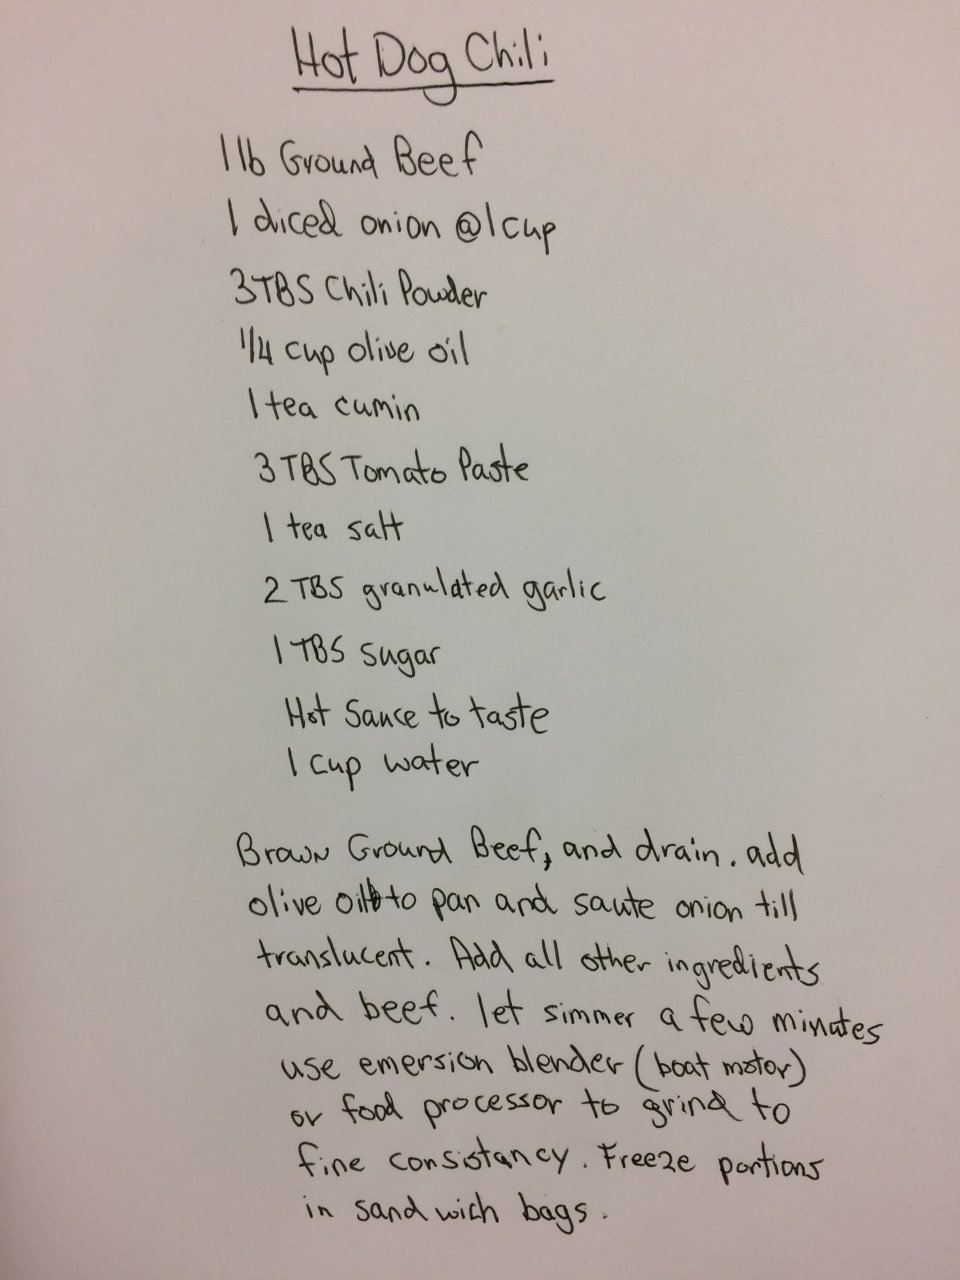 Hot Dog Chili
1 lb Ground Beef
1 diced onion @ 1 cup
3 TBS Chili Powder
1/4 cup olive oil
1 tea cumin
3 TBS Tomato Paste
1 tea salt
2 TBS granulated garlic
1 TBS sugar
Hot Sauce to taste
1 cup water
Brown Ground Beef, and drain. add
olive oil to pan and saute onion till
translucent. Add all other ingredients
and beef. let simmer a few minutes
use emersion blender (boat motor)
or food processor to grind to
fine consistancy. Freeze portions
in sandwich bags.